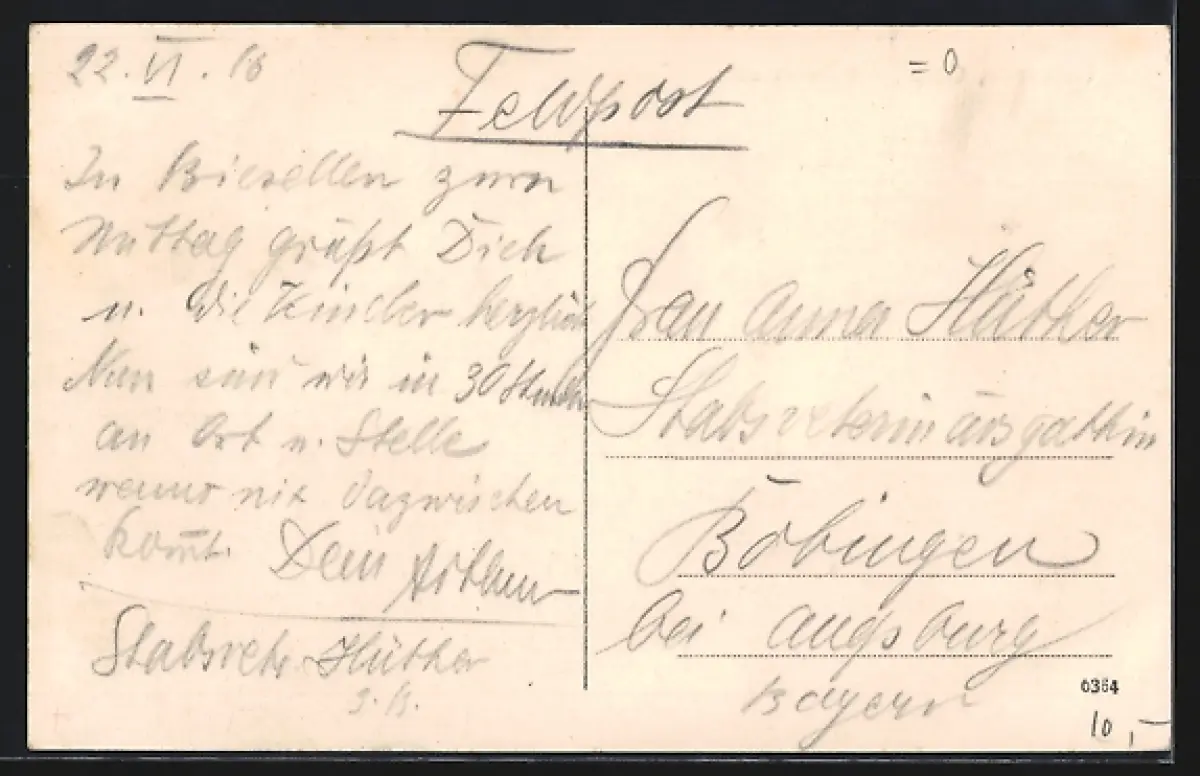 22.VI.18
Feldpost
= 0
In Biesellen zum
Mittag grüßt Dich
u. die Kinder herzlich
Nun sind wir in 30 Stunden
an Ort u. Stelle
wenns nix dazwischen
kom̄t. Dein Arthur
Stabsvet. Hüther
Frau Anna Hüther
Stabsveterinärsgattin
Böbingen
bei Augsburg
Bayern
0364
10,-